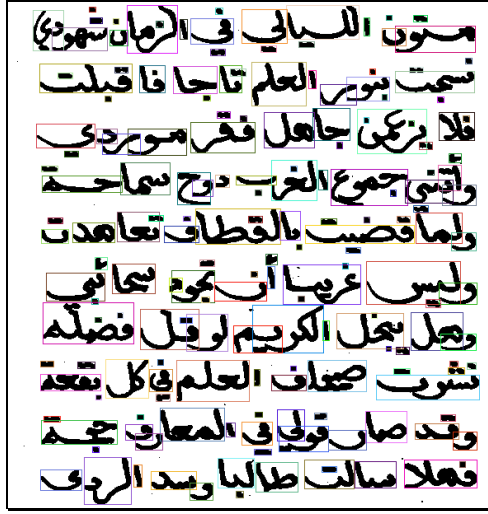 متون الليالي في الزمان شهودي
نسجت بنور العلم تاجا فأقبلت
فلا يزعمن جاهل فقر موردي
جموع العرب دوح سماحة
ولما قضيت بالقطاف تعاهدت
وليس غريبا أن يجود سحائبي
وهل يبخل الكريم لو قل فضله
نشرت ضعاف العلم في كل بقعة
وقد صار قولي في المعارف حجة
فهلا سألت طالبا وسد الردى